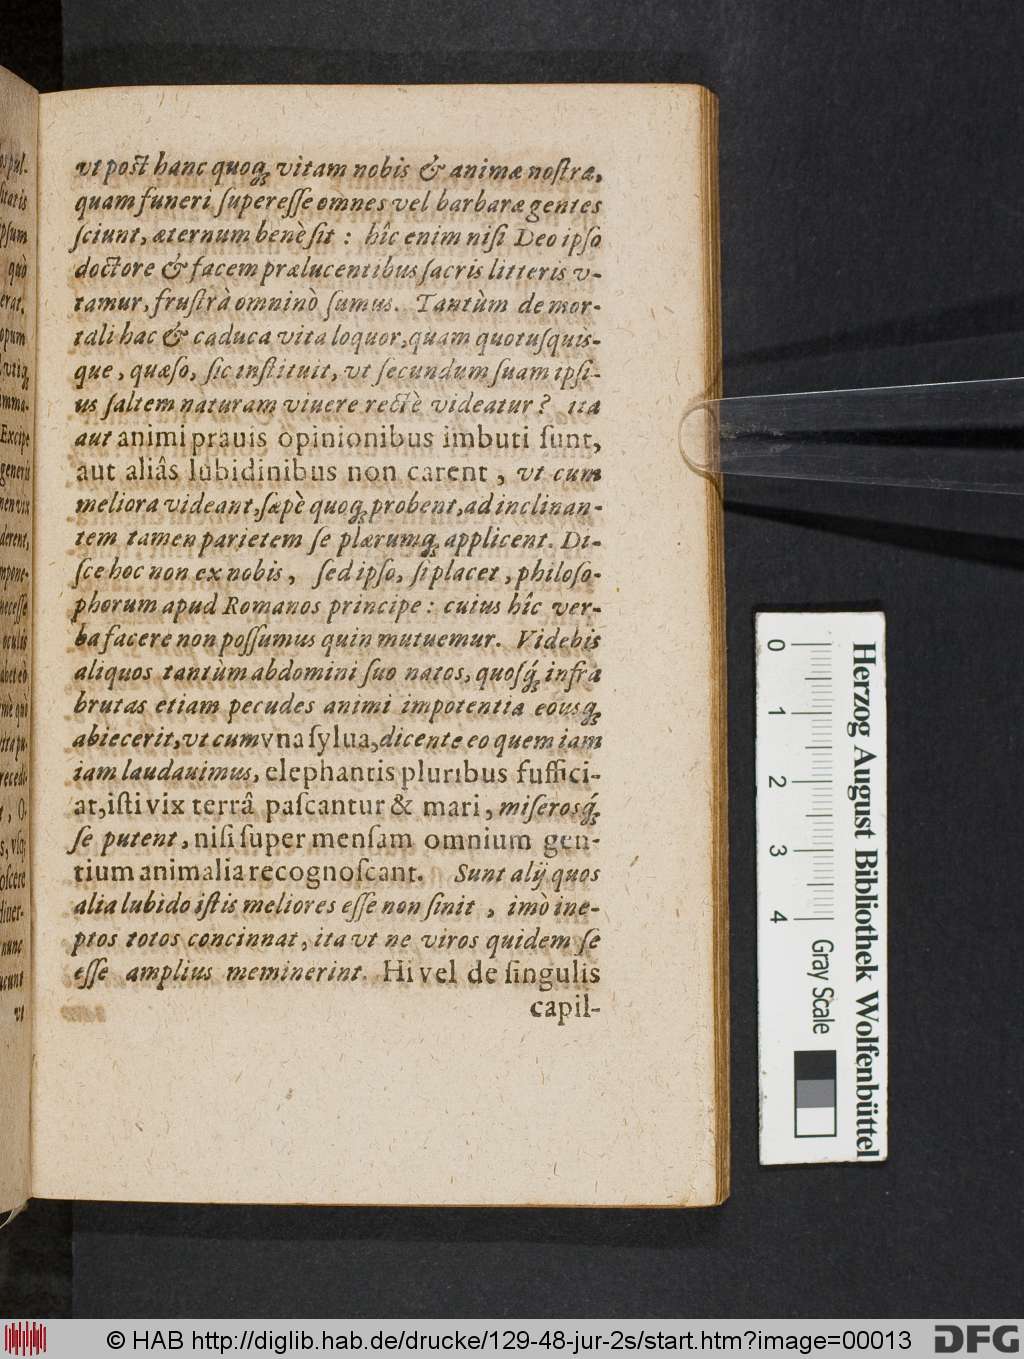 vt post hanc quoq́ꝫ vitam nobis & animæ nostræ,
quam funeri ſupereſſe omnes vel barbaræ gentes
ſciunt, æternum benè ſit : hîc enim niſi Deo ipſo
doctore & facem prælucentibus ſacris litteris v-
tamur, fruſtrà omninò ſumus. Tantùm de mor-
tali hac & caduca vita loquor, quam quotuſquis-
que, quæſo, ſic inſtituit, vt ſecundum ſuam ipſi-
us ſaltem naturam viuere rectè videatur ? ita
aut animi prauis opinionibus imbuti ſunt,
aut aliâs lubidinibus non carent, vt cum
meliora videant, ſæpè quoqꝫ probent, ad inclinan-
tem tamen parietem ſe plærumqꝫ applicent. Di-
ſce hoc non ex nobis, ſed ipſo, ſi placet, philoſo-
phorum apud Romanos principe : cuius hîc ver-
ba facere non poſſumus quin mutuemur. Videbis
aliquos tantùm abdomini ſuo natos, quoſq́ꝫ infra
brutas etiam pecudes animi impotentia eóusqꝫ
abiecerit, vt cum vna ſylua, dicente eo quem iam
iam laudauimus, elephantis pluribus ſuffici-
at, iſti vix terrâ paſcantur & mari, miſerosq́ꝫ
ſe putent, niſi ſuper menſam omnium gen-
tium animalia recognoſcant. Sunt alij quos
alia lubido iſtis meliores eſſe non ſinit, imò ine-
ptos totos concinnat, ita vt ne viros quidem ſe
eſſe amplius meminerint. Hi vel de ſingulis
capil-
Herzog August Bibliothek Wolfenbüttel
0 1 2 3 4 Gray Scale
© HAB http://diglib.hab.de/drucke/129-48-jur-2s/start.htm?image=00013
DFG